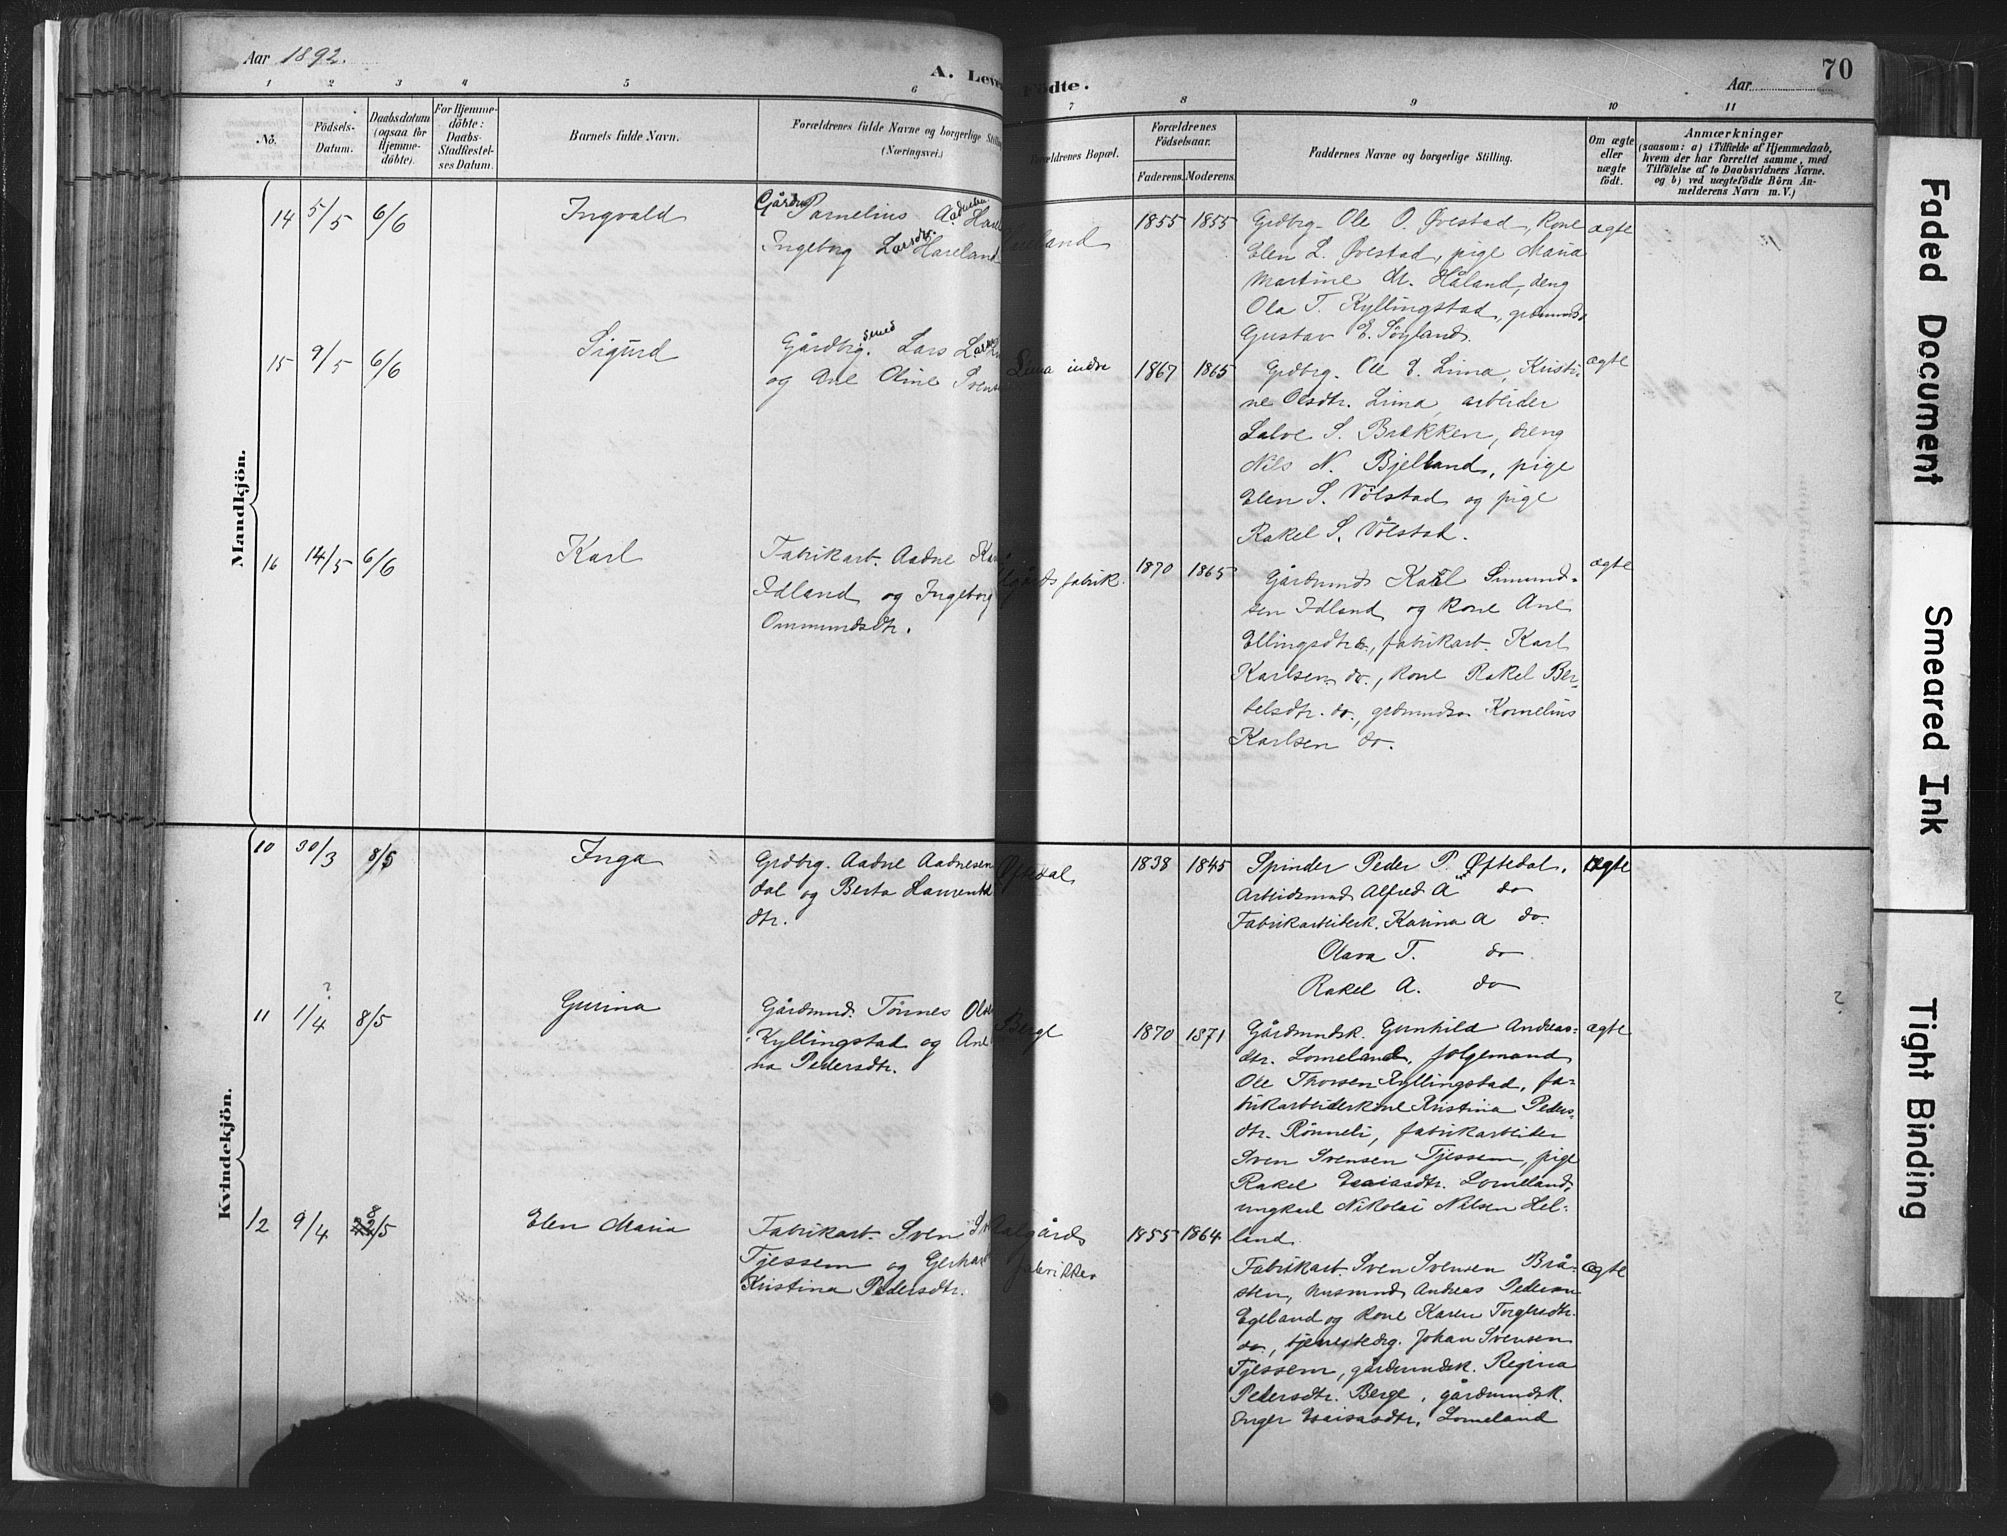 Aar 1892.
A. Leve
Födte.
Aar
70
1 2 3 4 5 6 7 8 9 10 11
No.
Födsels-
Datum.
Daabsdatum
(ogsaa for
Hjemme-
döbte).
For Hjemme-
döbte:
Daabs-
Stadfæstel-
ses Datum.
Barnets fulde Navn.
Forældrenes fulde Navne og borgerlige Stilling
(Næringsvei.)
Forældrenes Bopæl.
Forældrenes
Födselsaar.
Faderens. Moderens.
Faddernes Navne og borgerlige Stilling.
Om ægte
eller
uægte
födt.
Anmærkninger
(saasom: a) i Tilfælde af Hjemmedaab,
hvem der har forrettet samme, med
Tilföielse af to Daabsvidners Navne.
og b) ved uægtefödte Börn An-
melderens Navn m. V.)
Mandkjön.
14 5/5 6/6 Ingvald
Aadnesen
Ingeborg Larsdtr. Hareland
1855 1855
Grdbrg. Ole O. Øvestad, Kone
Elen L. Øvestad, pige Maria
Martine M. Håland, dreng
Ola T. Kyllingstad, grdmnds.
Gustav E. Søyland.
ægte
15 9/5 6/6 Sigurd
Smed
Gårdbrg. Lars
og Ane Oline Svens
Lima indre
1867 1865
Grdbrg. Ole E. Lima, Kristi-
ne Olsdtr. Lima, arbeider
Salve S. Brekken, dreng
Nils N. Bjelland, pige
Elen S. Vølstad og pige
Rakel S. Vølstad.
ægte
16 14/5 6/6 Karl
Fabrikarb. Aadne Kar
Idland og Ingeborg
Ommundsdtr.
fabrik.
1870 1865
Gårdmnds Karl Simund-
sen Idland og Kone Ane
Ellingsdtr., fabrikarb. Karl
Karlsen do., Kone Rakel Ber-
telsdtr. do., grdmndsn Kornelius
Karlsen do.
ægte
Kvindekjön.
10 30/3 8/5 Inga
Grdbrg. Aadne Aadnesen
dal og Berta Laurents
dtr.
Øftedal
1838 1845
Spinder Peder P. Øftedal,
Arbeidsmnd Alfred A do
Fabrikarbeidersk. Karina A do.
Olava T. do
Rakel A. do
ægte
11 1/4 ? 8/5 Gurina
Gårdmnd. Tønnes Ols
Kyllingstad og An
na Pedersdtr.
Berge
1870 1871
Gårdmndsk. Gunhild Andreas-
dtr. Lomeland, følgemand
Ole Thorsen Kyllingstad, fa-
brikarbeiderkone Kristina Peders-
dtr. Rønneli, fabrikarbeider
Sven Svensen Tjessem, pige
Rakel Esaiasdtr. Lomeland,
ungkarl Nikolai Nilsen Hel-
land.
ægte
?
12 9/4 8/5 Elen Maria
Fabrikarb. Sven
Tjessem og
Kristina Pedersdtr.
Aalgårds
fabrikker
1855 1864
Fabrikarb. Sven Svensen Brå-
sten, husmnd Andreas Pedersen
Egeland og Kone Karen Torgersdtr.
do., tjenestedrg. Johan Svensen
Tjessem, gårdmndsk. Regina
Pedersdtr. Berge, gårdmndsk.
Inger Esaiasdtr. Lomeland
ægte
Faded Document
Smeared Ink
Tight Binding